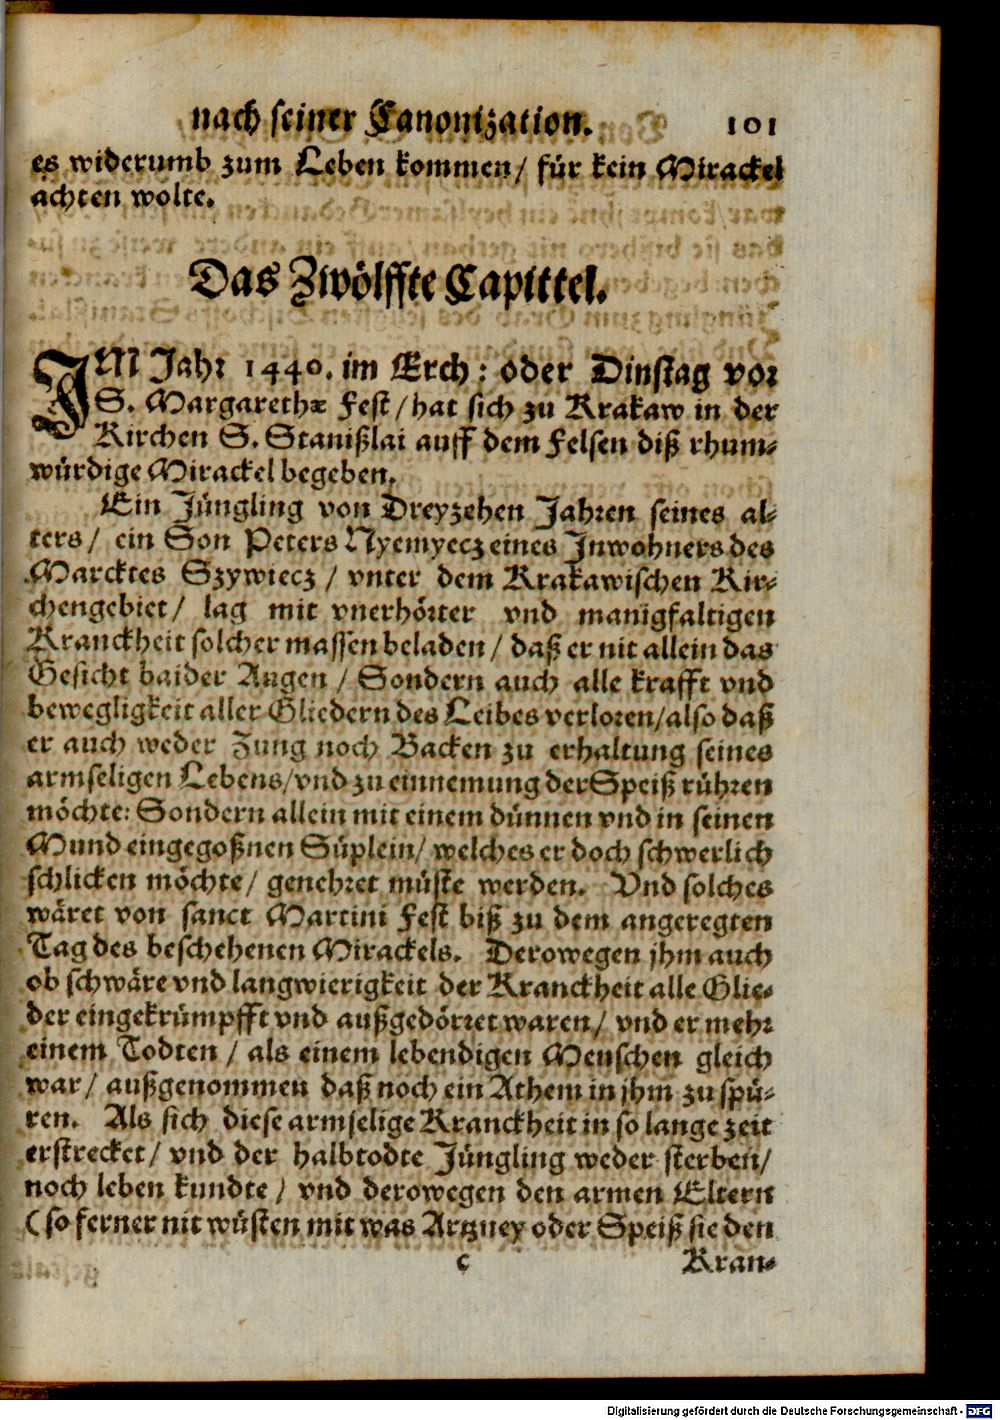 nach seiner Canonization. 101
es widerumb zum Leben kommen/ für kein Mirackel
achten wolte.
Das Zwölffte Capittel.
IM Jahr 1440. im Erch: oder Dinstag vor
S. Margarethæ Fest/hat sich zu Krakaw in der
Kirchen S. Stanißlai auff dem Felsen diß rhum-
würdige Mirackel begeben.
Ein Jüngling von Dreyzehen Jahren seines al-
ters/ ein Son Peters Nyemyecz eines Inwohners des
Marcktes Szywiecz/ vnter dem Krakawischen Kir-
chengebiet/ lag mit vnerhörter vnd manigfaltigen
Kranckheit solcher massen beladen/ daß er nit allein das
Gesicht baider Augen/ Sondern auch alle krafft vnd
bewegligkeit aller Gliedern des Leibes verloren/also daß
er auch weder Zung noch Backen zu erhaltung seines
armseligen Lebens/vnd zu einnemung der Speiß rühren
möchte: Sondern allein mit einem dünnen vnd in seinen
Mund eingegoßnen Süplein/ welches er doch schwerlich
schlicken möchte/ genehret müste werden. Vnd solches
wäret von sanct Martini Fest biß zu dem angeregten
Tag des beschehenen Mirackels. Derowegen jhm auch
ob schwäre vnd langwierigkeit der Kranckheit alle Glie-
der eingekrümpfft vnd außgedörret waren/ vnd er mehr
einem Todten/ als einem lebendigen Menschen gleich
war/ außgenommen daß noch ein Athem in jhm zu spü-
ren. Als sich diese armselige Kranckheit in so lange zeit
erstrecket/ vnd der halbtodte Jüngling weder sterben/
noch leben kundte/ vnd derowegen den armen Eltern
(so ferner nit wüsten mit was Artzney oder Speiß sie den
c Kran-
Digitalisierung gefördert durch die Deutsche Forschungsgemeinschaft - DFG